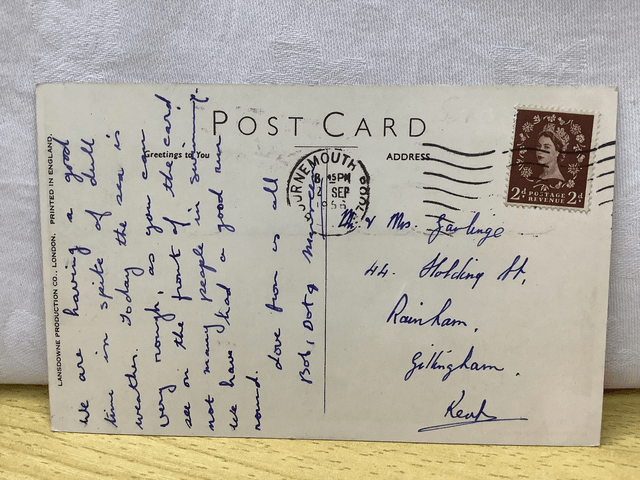 POST CARD
Greetings to You
ADDRESS
LANSDOWNE PRODUCTION CO., LONDON. PRINTED IN ENGLAND.
We are having a good
time in spite of dull
weather. Today the sea is
very rough, as you can
see on the front of the card
not many people in swimming
we have had a good run
round.
love from us all
Bob, Dot &
BOURNEMOUTH
8 15 PM
2 SEP
1956
2D POSTAGE REVENUE 2D
Mr & Mrs.
44. Holding St,
Rainham,
Gillingham.
Kent